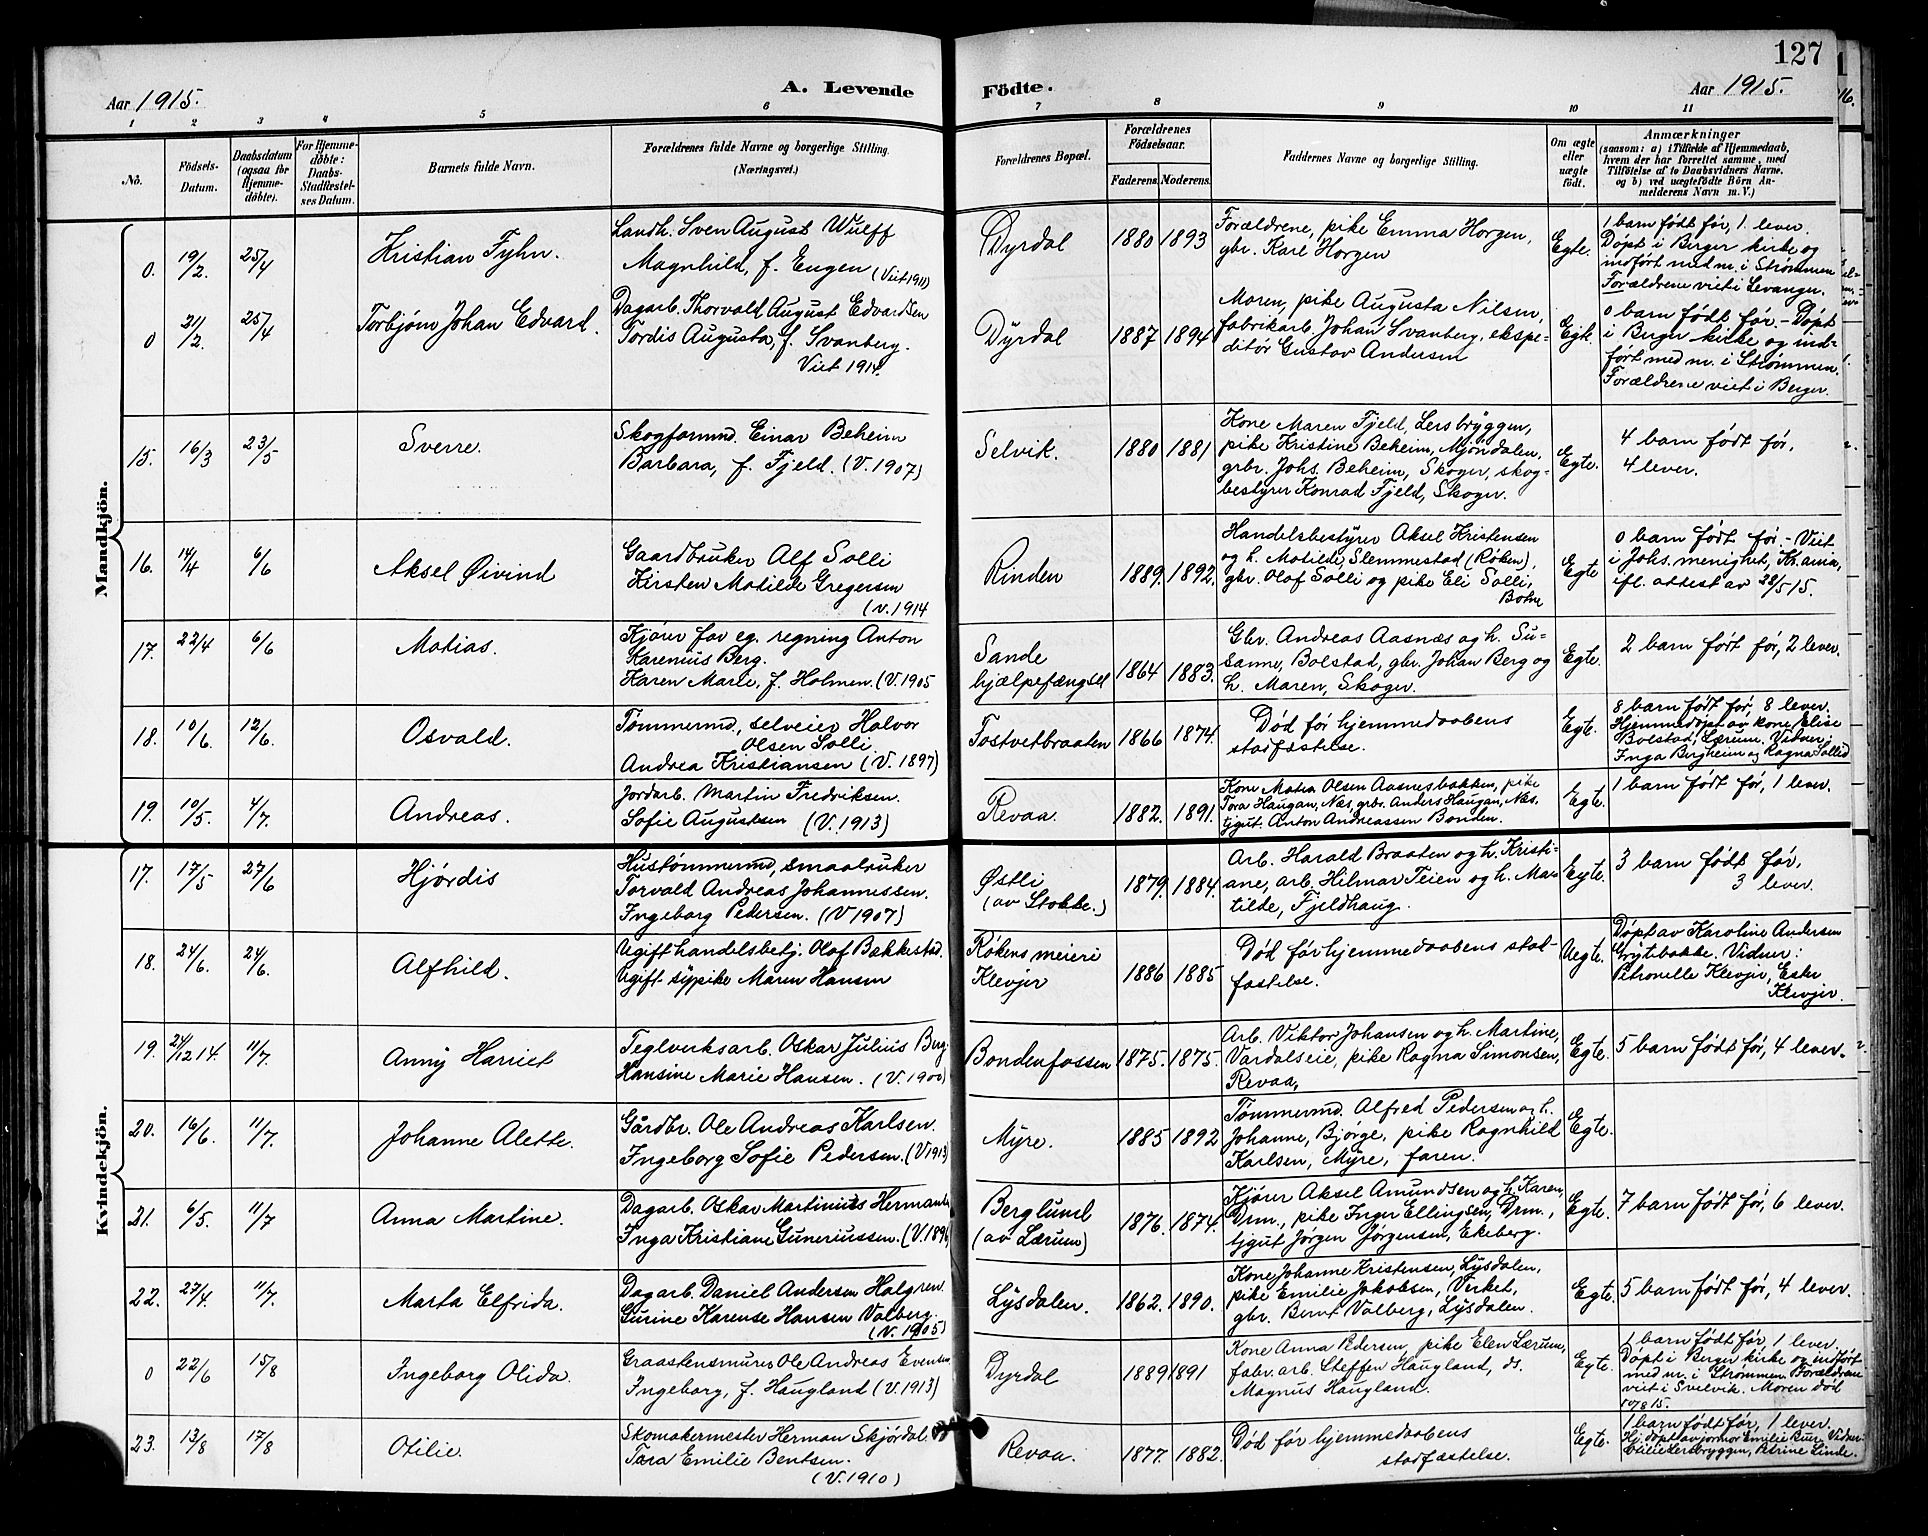 127
Aar 1915.
A. Levende
Födte.
Aar 1915.
1 2 3 4 5 6 7 8 9 10 11
No.
Födsels-
Datum.
Daabsdatum
(ogsaa for
Hjemme-
döbte).
For Hjemme-
döbte:
Daabs-
Stadfæstel-
ses Datum.
Barnets fulde Navn.
Forældrenes fulde Navne og borgerlige Stilling.
(Næringsvei.)
Forældrenes Bopæl.
Forældrenes
Födselsaar.
Faderens. Moderens.
Faddernes Navne og borgerlige Stilling.
Om ægte
eller
uægte
födt.
Anmærkninger
(saasom: a) i Tilfælde af Hjemmedaab,
hvem der har forrettet samme, med
Tilföielse af to Daabsvidners Navne,
og b) ved uægtefödte Börn An-
melderens Navn m. V.)
Mandkjön.
0. 19/2. 25/4 Kristian Fyhn.
Landh. Sven August Wulff
Magnhild, f. Eugen (Viet 1911)
Dyrdal 1880 1893
Forældrene, pike Emma Horgen,
gbr. Karl Horgen
Egte.
1 barn født før, 1 lever.
Døpt i Berger kirke og
indført med nr. i Strømmen
Forældrene viet i Levanger.
0 21/2. 25/4 Torbjørn Johan Edvard.
Dagarb. Thorvald August Edvardsen
Tordis Augusta, f. Svanberg.
Viet 1914.
Dyrdal 1887 1894
Moren, pike Augusta Nilsen,
fabrikarb. Johan Svanberg, ekspe-
ditør Gustav Andersen
Egte.
0 barn født før. - Døpt
i Berger kirke og ind-
ført med nr. i Strømmen.
Forældrene viet i Berger.
15. 16/3 23/5 Sverre.
Skogformd. Einar Beheim
Barbara, f. Fjeld. (V. 1907)
Selvik. 1880 1881
Kone Maren Fjeld, Lersbryggen,
pike Kristine Beheim, Mjøndalen,
grbr. Johs. Beheim, Skoger, skog-
bestyrer Konrad Fjeld, Skoger.
Egte.
4 barn født før,
4 lever.
16. 14/4 6/6 Aksel Øivind
Gaardbruker Alf Solli
Kirsten Matilde Gregersen
(V. 1914
Rinden 1889. 1892.
Handelsbestyrer Aksel Kristensen
og h. Matilde, Slemmestad (Røken),
gbr. Olaf Solli og pike Eli Solli,
Botne
Egte
0 barn født før. - Viet
i Johs. menighet, Kr.ania,
ifl. attest av 28/5 15.
17. 22/4 6/6 Matias.
Kjører for eg. regning Anton
Karenius Berg.
Karen Marie, f. Holmen. (V. 1905
Sande
hjælpefængsel 1864 1883.
Gbr. Andreas Aasnæs og h. Su-
sanne, Bolstad, gbr. Johan Berg og
h. Maren, Skoger.
Egte.
2 barn født før, 2 lever.
18. 10/6. 12/6. Osvald.
Tømmermd., selveier Halvor
Olsen Solli.
Andrea Kristiansen (V. 1897)
Tostvetbraaten 1866 1874.
Død før hjemmedaabens
stadfæstelse.
Egte.
8 barn født før, 8 lever.
Hjemmedøpt av kone Elise
Bolstad, Lærum. Vidner:
Inga Bergheim og Ragna Sollid
19. 10/5. 4/7. Andreas.
Jordarb. Martin Fredriksen.
Sofie Augustsen (V. 1913)
Revaa. 1882. 1891.
Kone Matea Olsen Aasnesbakken, pike
Tora Haugan, Næs, grbr. Anders Haugan, Næs,
tjgut. Anton Andreassen Bonden.
Egte.
1 barn født før, 1 lever.
Kvindekjön.
17. 17/5 27/6 Hjørdis
Hustømmermd, smaabruker
Torvald Andreas Johannessen.
Ingeborg Pedersen. (V 1907)
Østli
(av Stokke.) 1879. 1884.
Arb. Harald Braaten og h. Kristi-
ane, arb. Hilmar Teien og h. Ma-
tilde, Fjeldhaug.
Egte.
3 barn født før,
3 lever.
18. 24/6. 24/6. Alfhild.
Ugift handelsbetj. Olaf Bakkestad.
Ugift sypike Maren Hansen
Røkens meieri
Klevjer 1886 1885
Død før hjemmedaabens stad-
fæstelse.
Uegte.
Døpt av Karoline Andersen
Grytebakke. Vidner:
Petronelle Klevjer, Ester
Klevjer.
19. 24/12 14. 11/7. Anny Harriet
Teglverksarb. Oskar Julius Berg
Hansine Marie Hansen. (V. 1900)
Bondenfossen 1875. 1875.
Arb. Viktor Johansen og h. Martine,
Vardalseie, pike Ragna Simonsen,
Revaa,
Egte.
5 barn født før, 4 lever.
20. 16/6. 11/7. Johanne Alette.
Gårdbr. Ole Andreas Karlsen.
Ingeborg Sofie Pedersen. (V 1913)
Myre. 1885 1892
Tømmermd. Alfred Pedersen og h.
Johanne, Bjørge, pike Ragnhild
Karlsen, Myre, faren.
Egte.
21. 6/5. 11/7 Anna Martine.
Dagarb. Oskar Martinius Hermans
Inga Kristiane Guneriussen. (V. 1896
Berglund
(av Lærum) 1876. 1874.
Kjører Aksel Amundsen og h. Karen,
Drm., pike Inger Ellingsen, Drm.,
tjgut Jørgen Jørgensen, Ekeberg.
Egte.
7 barn født før, 6 lever.
22. 27/4. 11/7. Marta Elfrida.
Dagarb. Daniel Andersen Halgren.
Gurine Karense Hansen Valberg.
(V. 1905)
Lysdalen. 1862. 1890.
Kone Johanne Kristensen, Lysdalen,
pike Emilie Jakobsen, Verket,
gbr. Bernt Valberg, Lysdalen.
Egte.
5 barn født før, 4 lever.
0 22/6 15/8 Ingeborg Olida.
Graastensmurer Ole Andreas Evensen
Ingeborg, f. Haugland (V. 1913)
Dyrdal 1889 1891
Kone Anna Pedersen, pike Elen Lærum,
fabr. arb. Steffen Haugland, ds.
Magnus Haugland.
Egte.
1 barn født før, 1 lever.
Døpt i Berger kirke og indført
med nr. i Strømmen. Forældrene
viet i Svelvik. Moren død
10/8 15.
23. 13/8 17/8 Otilie.
Skomakermester Herman Skjørdal
Tara Emilie Bentsen.
(V. 1910)
Revaa. 1877. 1882.
Død før hjemmedaabens
stadfæstelse.
Egte.
1 barn født før, 1 lever.
Hj.døpt av jormor Emilie Ruu. Vidner:
Lersbryggen, Petrine Linde.